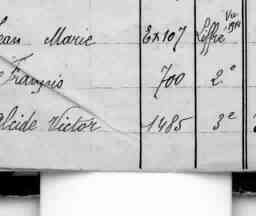 ean Marie Ex107 Liffré
François 700 2e
lcide Victor 1485 3e